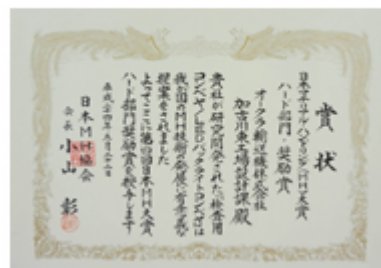 賞状
日本マテリアル・ハンドリング(MH)大賞
ハード部門・奨励賞
オークラ輸送機株式会社
加古川東工場設計課殿
貴社が研究開発された検査用
コンベヤ/LEDバックライトコンベヤは
我が国のMH技術の発展に有意義な
提案をされました
よってここに第回日本MH大賞
ハード部門奨励賞を授与します
平成二十四年五月二十二日
日本MH協会
会長 小山 彰